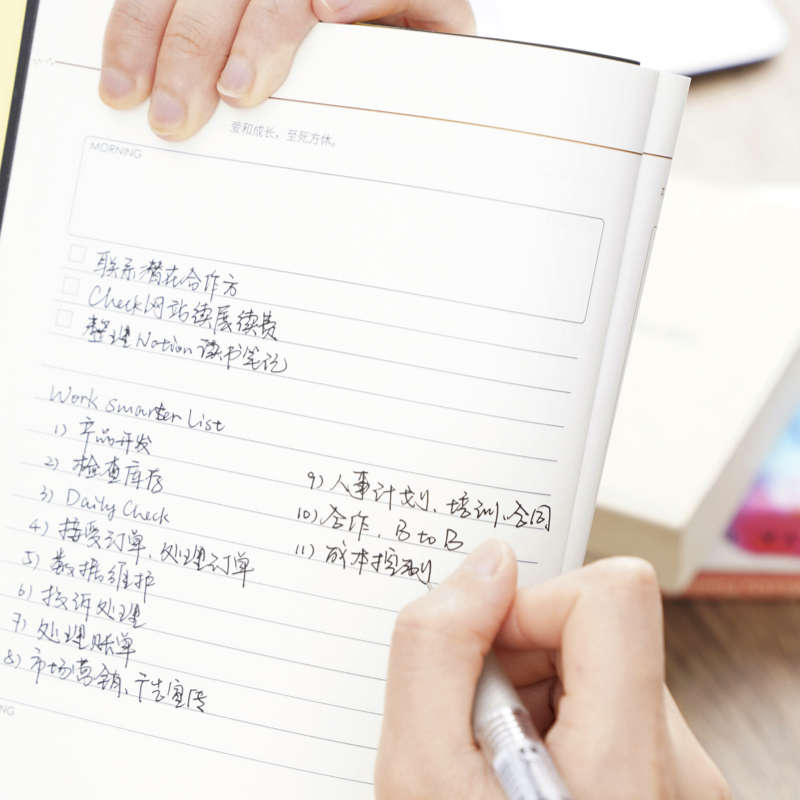 爱和成长，至死方休。
MORNING
联系潜在合作方
Check网站续展续费
整理Notion读书笔记
Work smarter List
1) 产品开发
2) 检查库存
3) Daily Check
4) 接受订单、处理订单
5) 数据维护
6) 投诉处理
7) 处理账单
8) 市场营销、广告宣传
9) 人事计划、培训、合同
10) 合作、B to B
11) 成本控制
NG